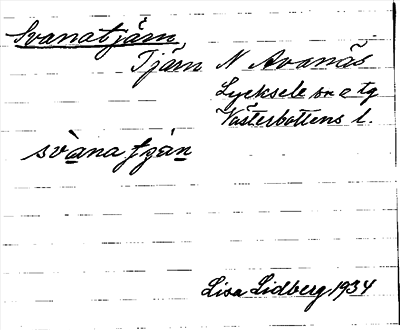 Svanatjärn
Tjärn N Avanäs
Lycksele sn o tg
Västerbottens l.
svàna tjän
Lisa Lidberg 1934